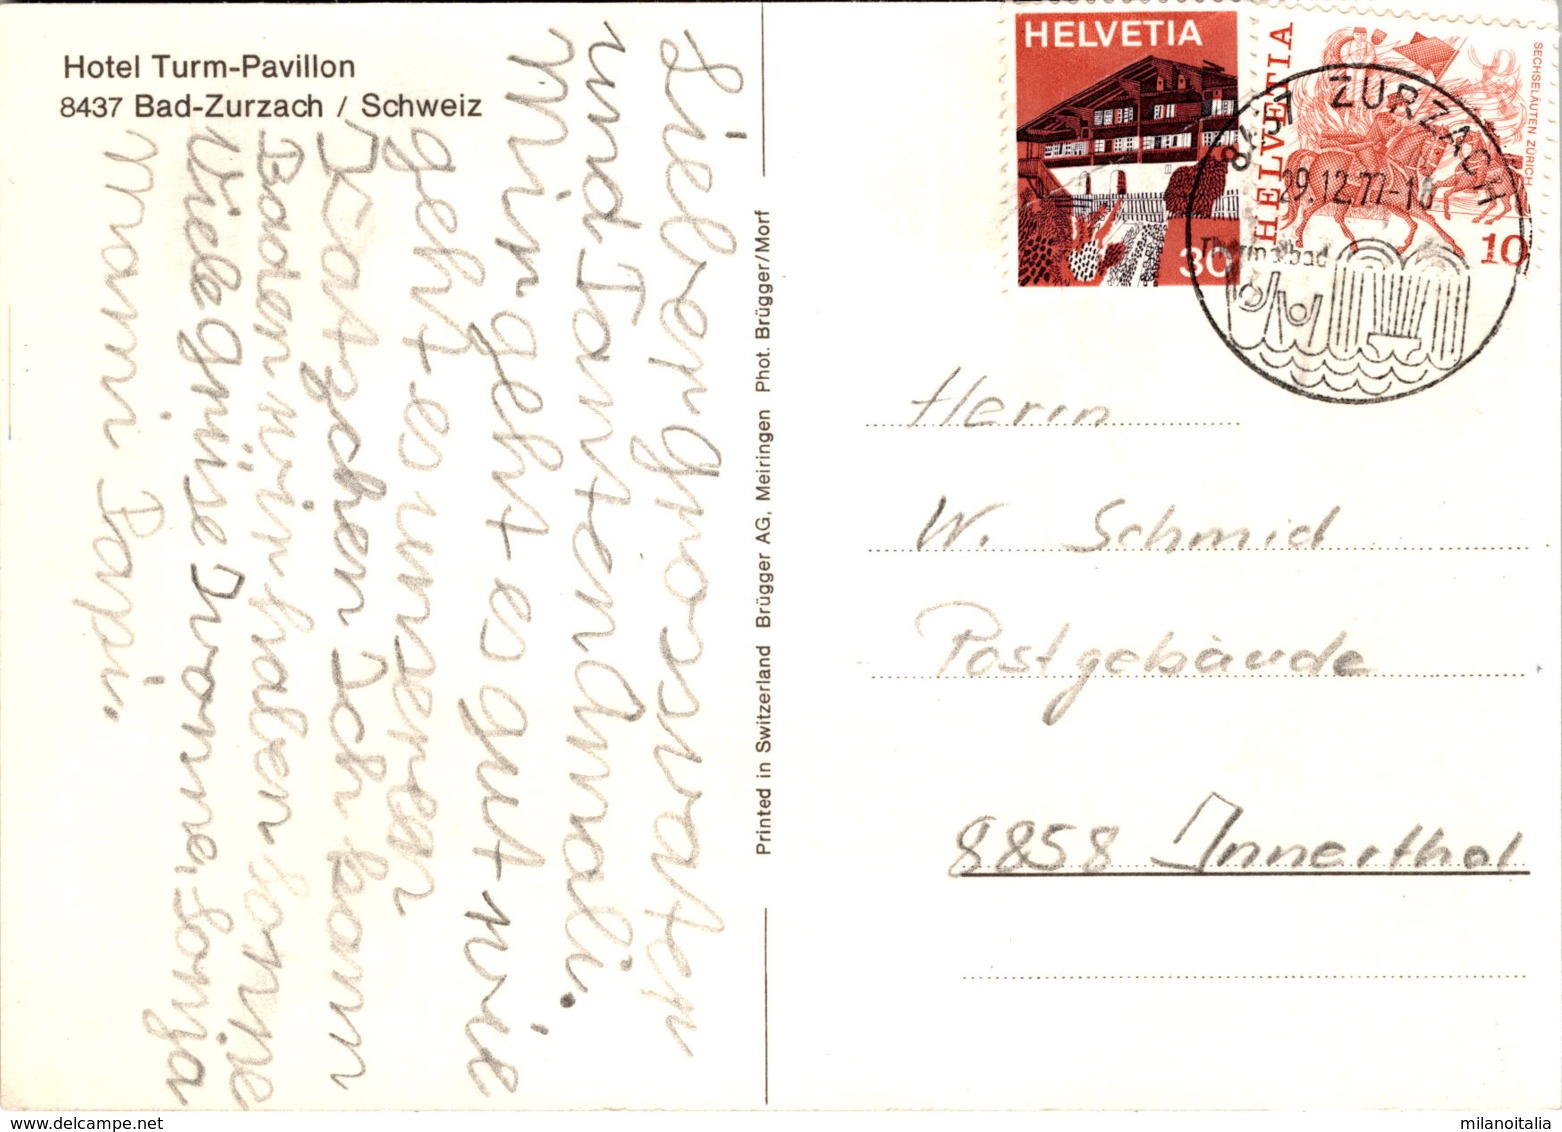 Hotel Turm-Pavillon
8437 Bad-Zurzach / Schweiz
Lieber Grossvater
und Tante Amali.
Mir geht es gut, wie
geht es unseren
Katzchen Ich kann
Baden wir haben Sonne
Viele Grüse Ivonne, Sonya
Mami Papi.
Printed in Switzerland Brügger AG, Meiringen Phot. Brügger/Morf
HELVETIA
30
HELVETIA
SECHSELÄUTEN ZÜRICH
10
8437 ZURZACH
29.12.77-18
Thermalbad
Herrn
W. Schmid
Postgebäude
8858 Innerthal
milanoitalia